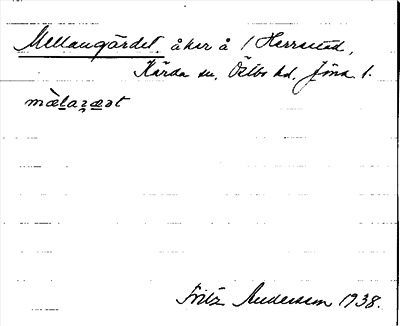 Mellangärdet. åker å 1 Herrestad,
Kärda sn. Östbo hd. Jönk. l.
mæ̀laʒæət
Fritz Andersson 1938.